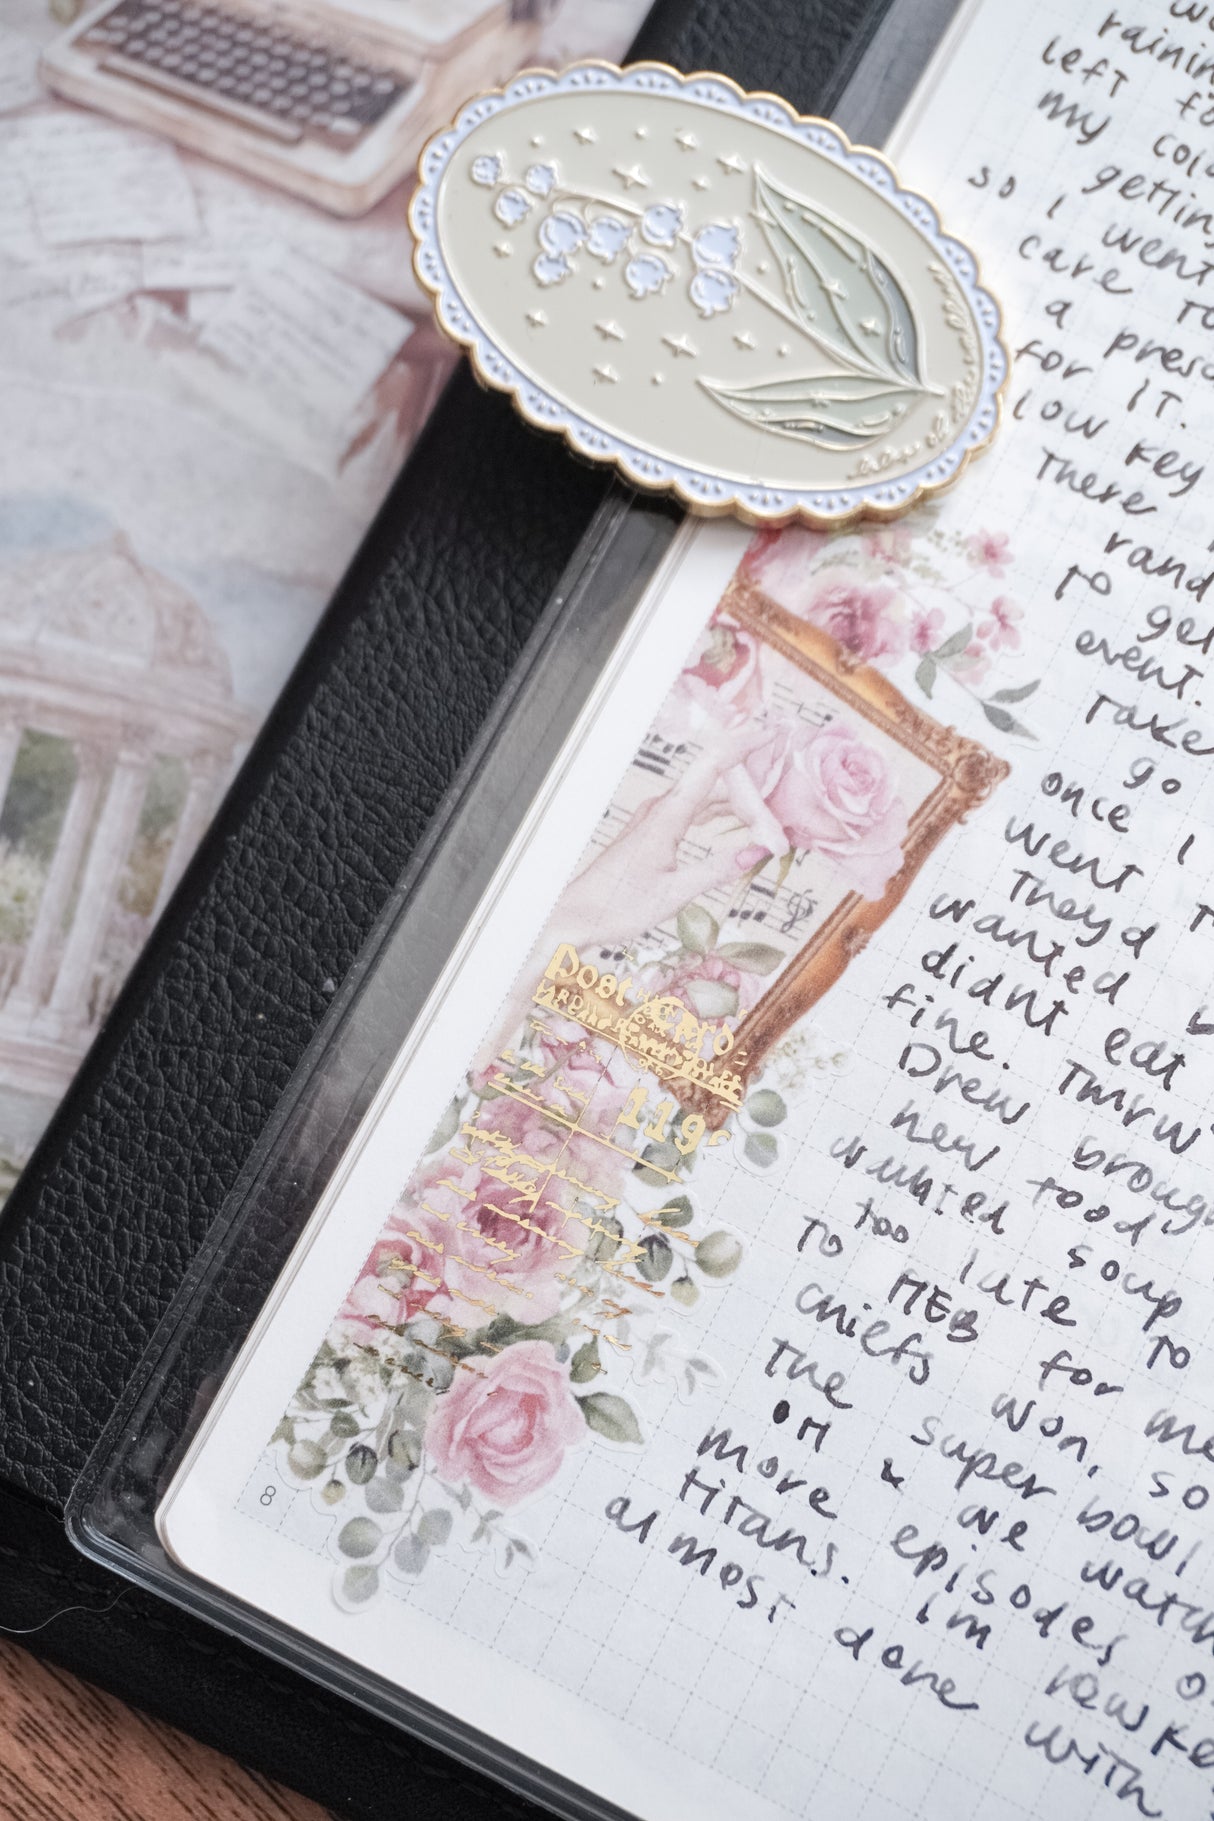 lily of the valley
rainin
left fo
my cold
getting
so I went
care to
a presc
for it.
low key
There
rand
to get
event.
take
go
once I
went t
they'd
wanted b
didnt eat
fine. Tmrw
Drew broug
new food
wanted soup
too late to
to HEB for me
chiefs won, so
the super bowl
on & we watch
more episodes o
titans. Im
almost done with
Post Card
119
8